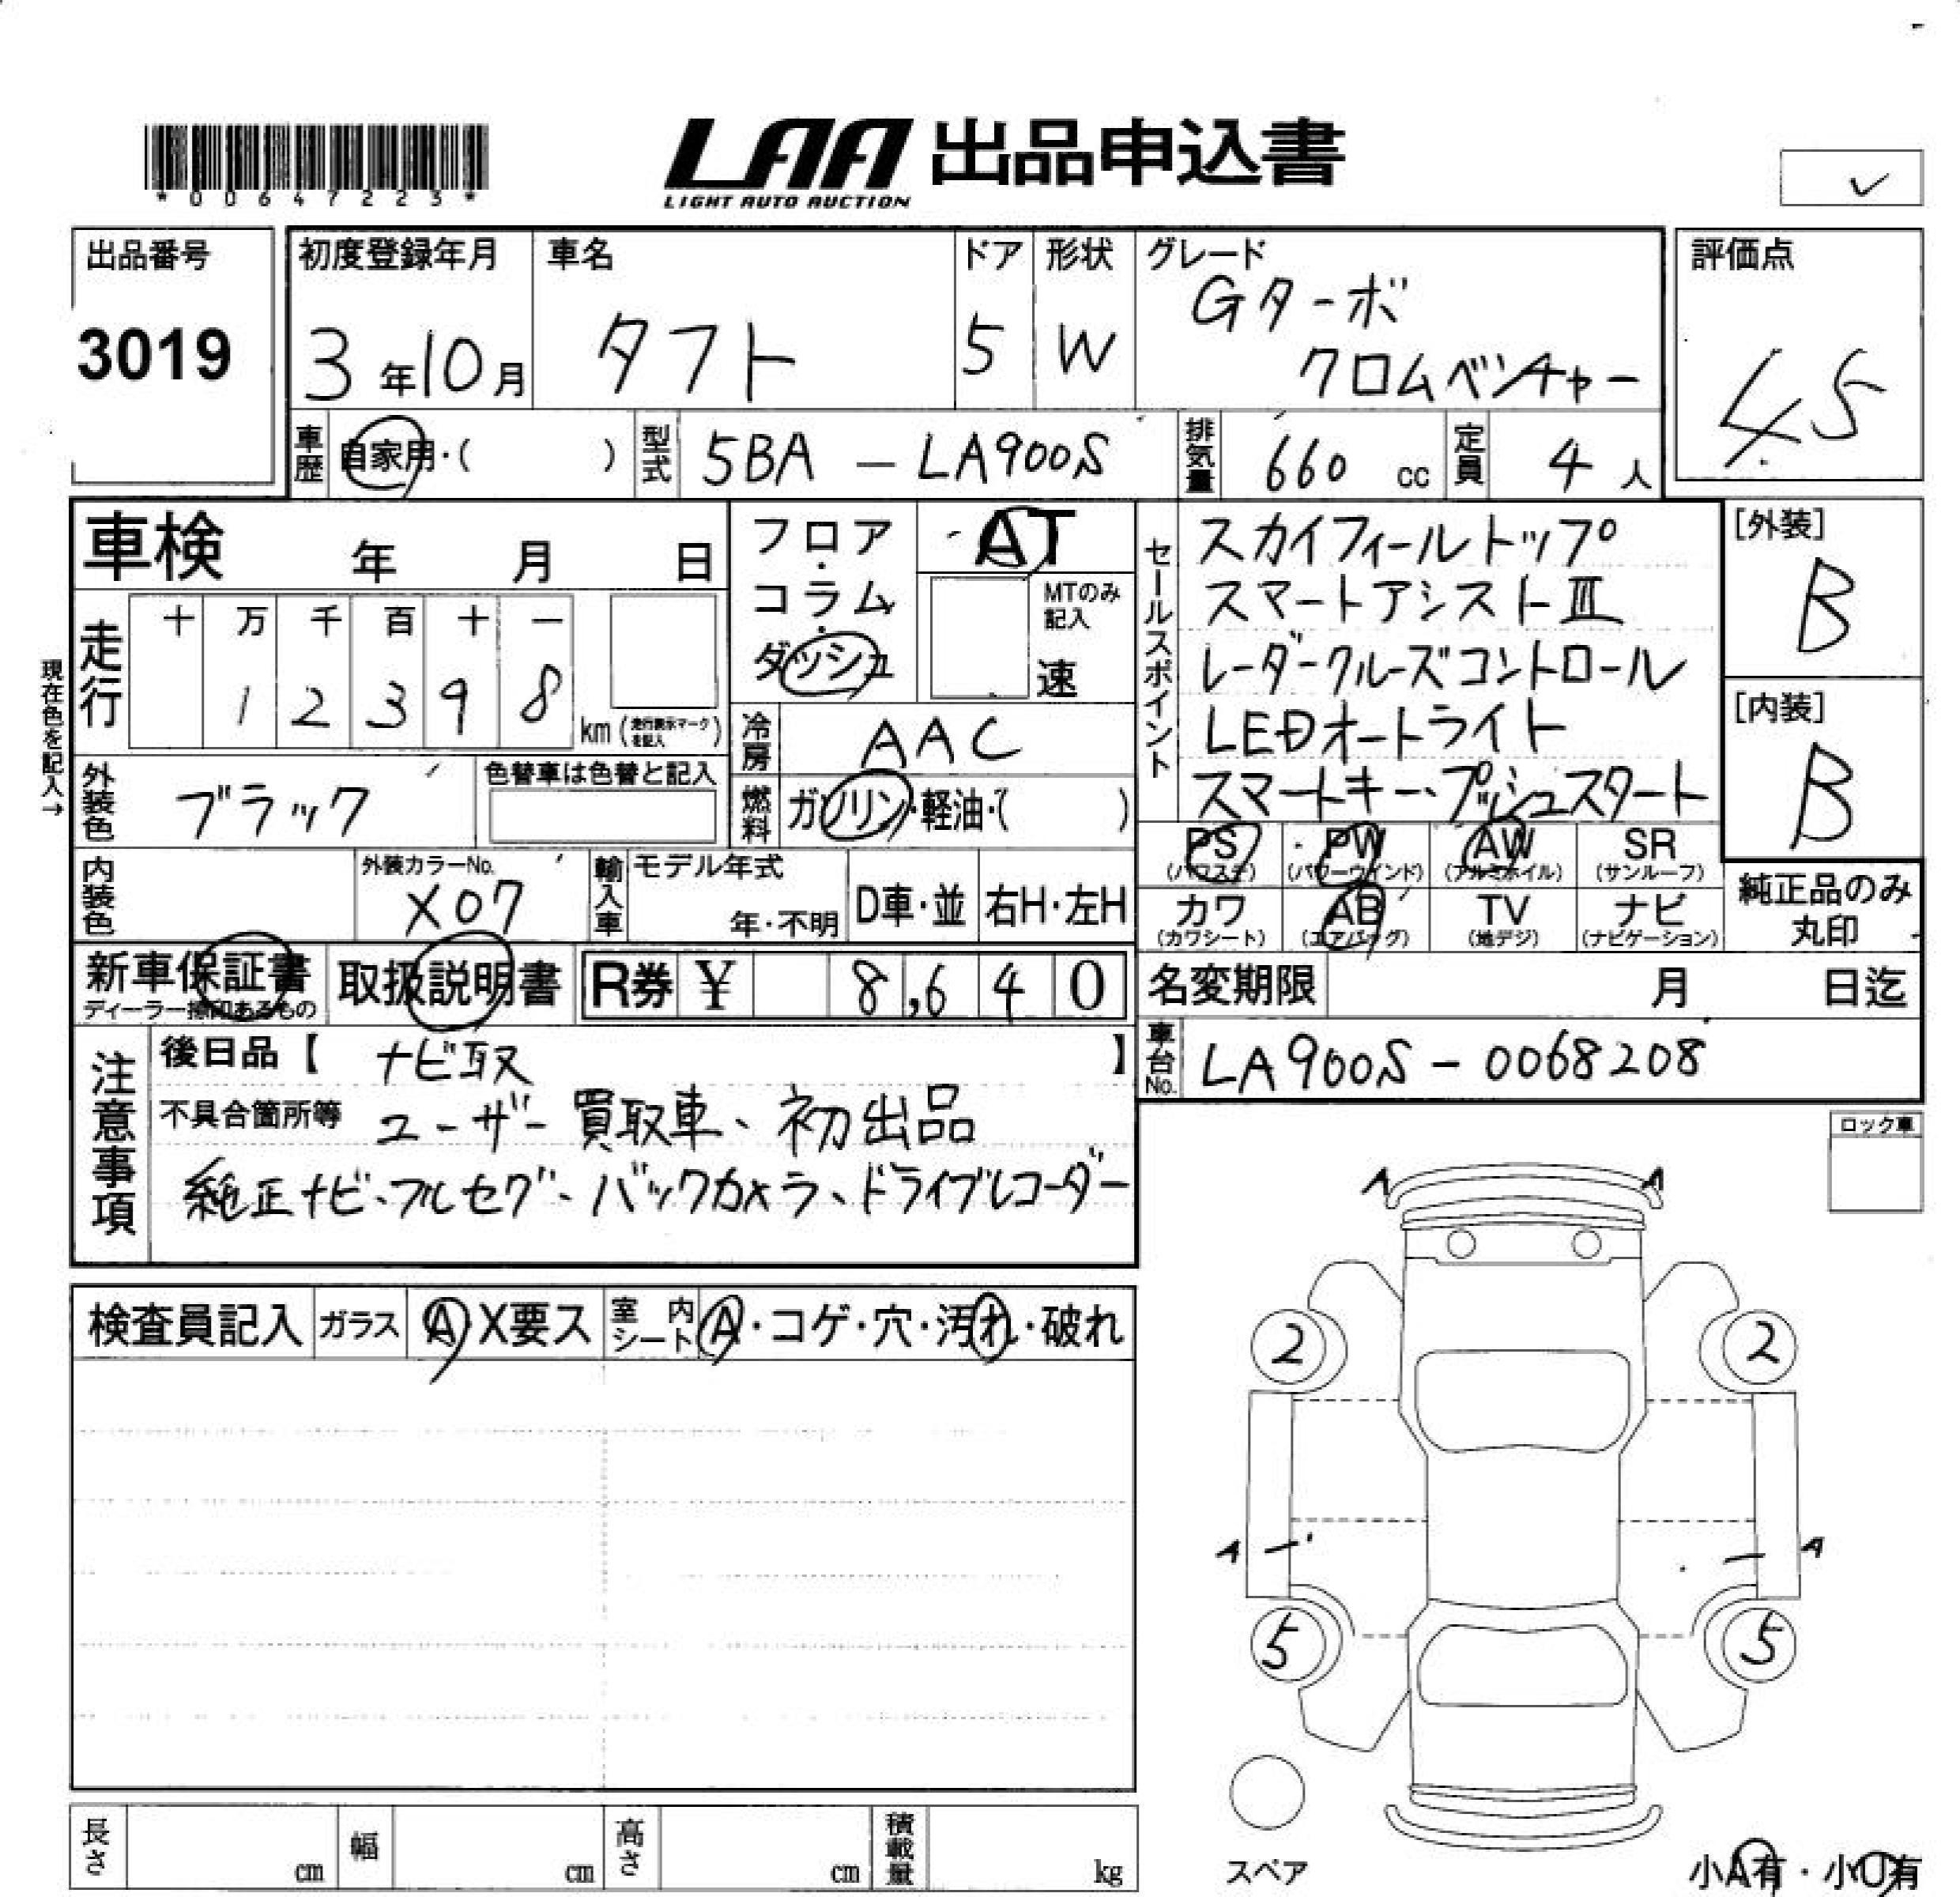 *00647223*
LAA 出品申込書
LIGHT AUTO AUCTION
✓
出品番号
3019
初度登録年月
3年10月
車名
タフト
ドア
5
形状
W
グレード
Gターボ
クロムベンチャー
評価点
4.5
車歴
自家用・( )
型式
5BA - LA900S
排気量
660 cc
定員
4 人
車検 年 月 日
フロア・コラム・ダッシュ
AT
MTのみ記入
速
現在色を記入→
走行
十 万 千 百 十 一
1 2 3 9 8
km (走行表示マークを記入)
冷房
AAC
外装色
ブラック
色替車は色替と記入
燃料
ガソリン・軽油・( )
内装色
外装カラーNo.
X07
輸入車
モデル年式
年・不明
D車・並
右H・左H
セールスポイント
スカイフィールトップ
スマートアシストIII
レーダークルーズコントロール
LEDオートライト
スマートキー、プッシュスタート
[外装]
B
[内装]
B
PS (パワステ) PW (パワーウインド) AW (アルミホイル) SR (サンルーフ)
カワ (カワシート) AB (エアバッグ) TV (地デジ) ナビ (ナビゲーション)
純正品のみ
丸印
新車保証書
ディーラー捺印あるもの
取扱説明書
R券 ¥ 8,640
名変期限 月 日迄
車台No.
LA900S - 0068208
注意事項
後日品【 ナビ取 】
不具合箇所等 ユーザー買取車、初出品
純正ナビ、フルセグ、バックカメラ、ドライブレコーダー
ロック車
検査員記入
ガラス A・X要ス
室内シート A・コゲ・穴・汚れ・破れ
A A
2 2
A A
5 5
スペア
小A有・小U有
長さ cm
幅 cm
高さ cm
積載量 kg